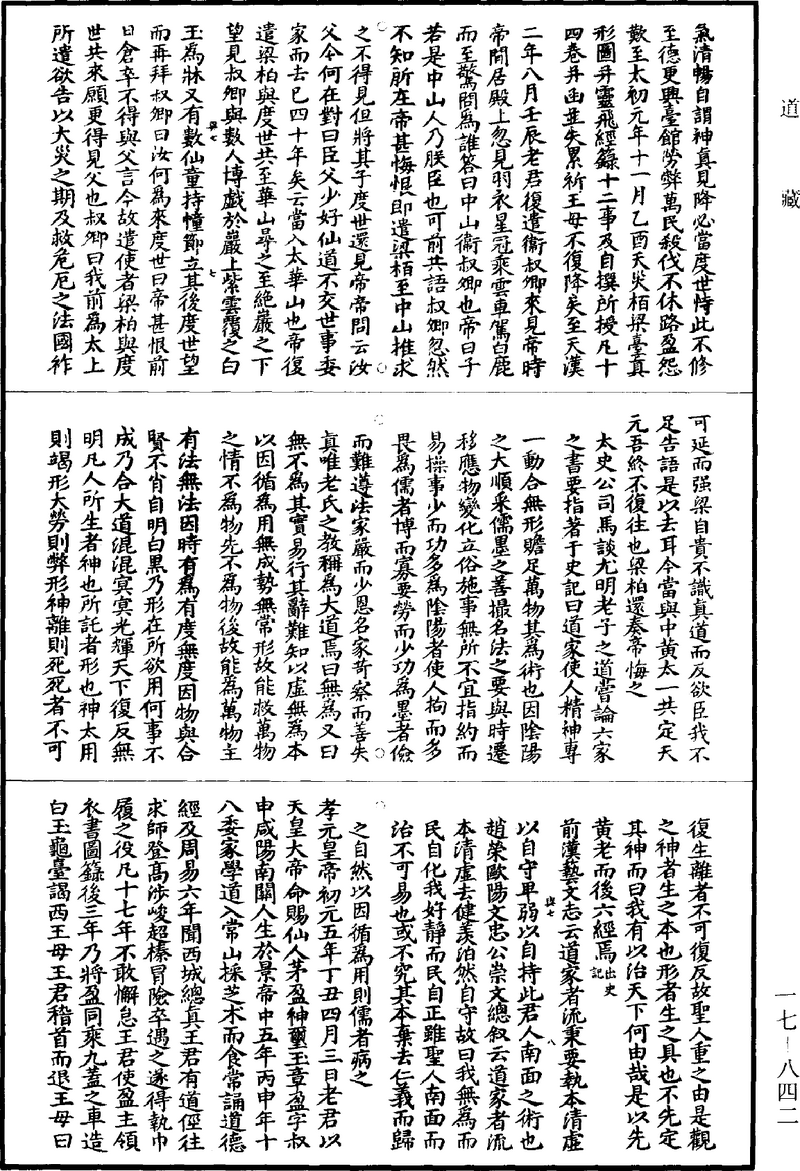 道藏
氣清暢自謂神真見降必當度世恃此不修
至德更興臺館勞弊萬民殺伐不休路盈怨
歎至太初元年十一月乙酉天災栢梁臺真
形圖并靈飛經籙十二事及自撰所授凡十
四卷并函並失累祈王母不復降矣至天漢
二年八月壬辰老君復遣衞叔卿來見帝時
帝閒居殿上忽見羽衣星冠乘雲車駕白鹿
而至驚問為誰答曰中山衞叔卿也帝曰子
若是中山人乃朕臣也可前共語叔卿忽然
不知所在帝甚悔恨即遣梁栢至中山推求
之不得見但將其子度世還見帝帝問云汝
父今何在對曰臣父少好仙道不交世事委
家而去已四十年矣云當入太華山也帝復
遣梁柏與度世共至華山尋之至絶巖之下
望見叔卿與數人博戲於巖上紫雲覆之白
玉為牀又有數仙童持幢節立其後度世望
而再拜叔卿曰汝何為來度世曰帝甚恨前
日倉卒不得與父言今故遣使者梁柏與度
世共來願更得見父也叔卿曰我前為太上
所遣欲告以大災之期及救危厄之法國祚
可延而强梁自貴不識真道而反欲臣我不
足告語是以去耳今當與中黄太一共定天
元吾終不復往也梁柏還奏帝悔之
太史公司馬談尤明老子之道嘗論六家
之書要指著于史記曰道家使人精神專
一動合無形贍足萬物其為術也因陰陽
之大順采儒墨之善撮名法之要與時遷
移應物變化立俗施事無所不宜指約而
易操事少而功多為陰陽者使人拘而多
畏為儒者博而寡要勞而少功為墨者儉
而難遵法家嚴而少恩名家苛察而善失
真唯老氏之教稱為大道焉曰無為又曰
無不為其實易行其辭難知以虛無為本
以因循為用無成勢無常形故能救萬物
之情不為物先不為物後故能為萬物主
有法無法因時有為有度無度因物與合
賢不肖自明白黒乃形在所欲用何事不
成乃合大道混混冥冥光輝天下復反無
明凡人所生者神也所託者形也神太用
則竭形大勞則弊形神離則死死者不可
復生離者不可復反故聖人重之由是觀
之神者生之本也形者生之具也不先定
其神而曰我有以治天下何由哉是以先
黄老而後六經焉出史記
前漢藝文志云道家者流秉要執本清虛
以自守卑弱以自持此君人南面之術也
趙榮歐陽文忠公崇文總叙云道家者流
本清虛去健羡泊然自守故曰我無為而
民自化我好静而民自正雖聖人南面而
治不可易也或不究其本棄去仁義而歸
之自然以因循為用則儒者病之
孝元皇帝初元五年丁丑四月三日老君以
天皇大帝命賜仙人茅盈神璽玉章盈字叔
申咸陽南關人生於景帝中五年丙申年十
八委家學道入常山採芝术而食常誦道德
經及周易六年聞西城總真王君有道徑往
求師登高涉峻超榛冒險卒遇之遂得執巾
履之役凡十七年不敢懈怠王君使盈主領
衣書圖籙後三年乃將盈同乘九蓋之車造
白玉龜臺謁西王母王君稽首而退王母曰
一七—八四二